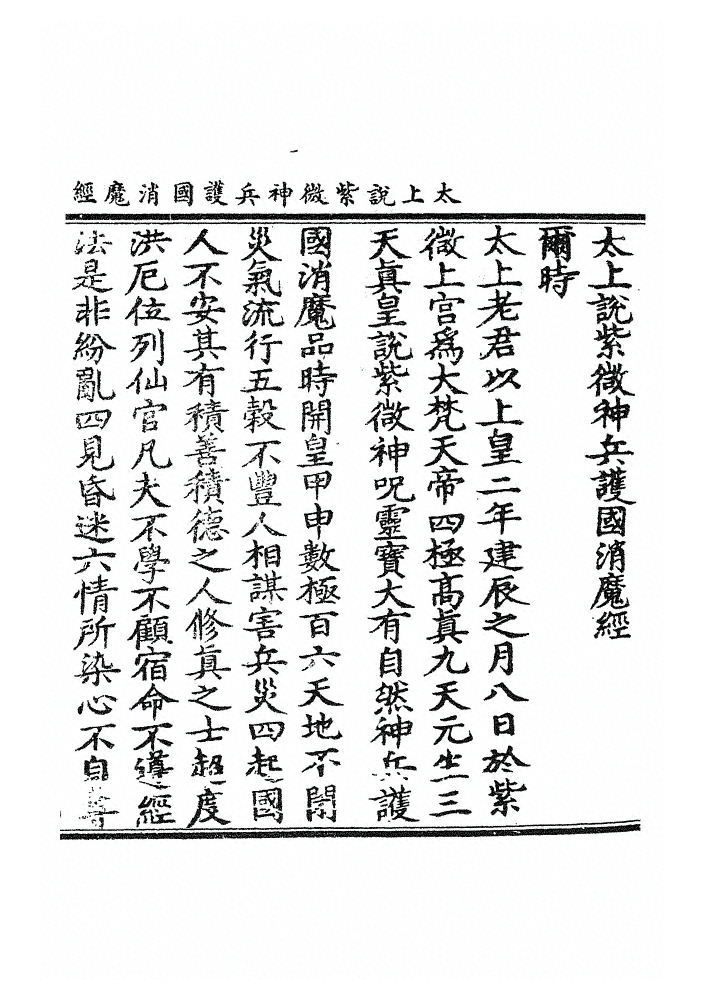 太上說紫微神兵護國消魔經
太上說紫微神兵護國消魔經
爾時
太上老君以上皇二年建辰之月八日於紫
微上宮爲大梵天帝四極高眞九天元生三
天眞皇說紫微神呪靈寶大有自然神兵護
國消魔品時開皇甲申數極百六天地不閇
災氣流行五穀不豐人相謀害兵災四起國
人不安其有積善積德之人修眞之士超度
洪厄位列仙官凡夫不學不顧宿命不遵經
法是非紛亂四見昏迷六情所染心不自